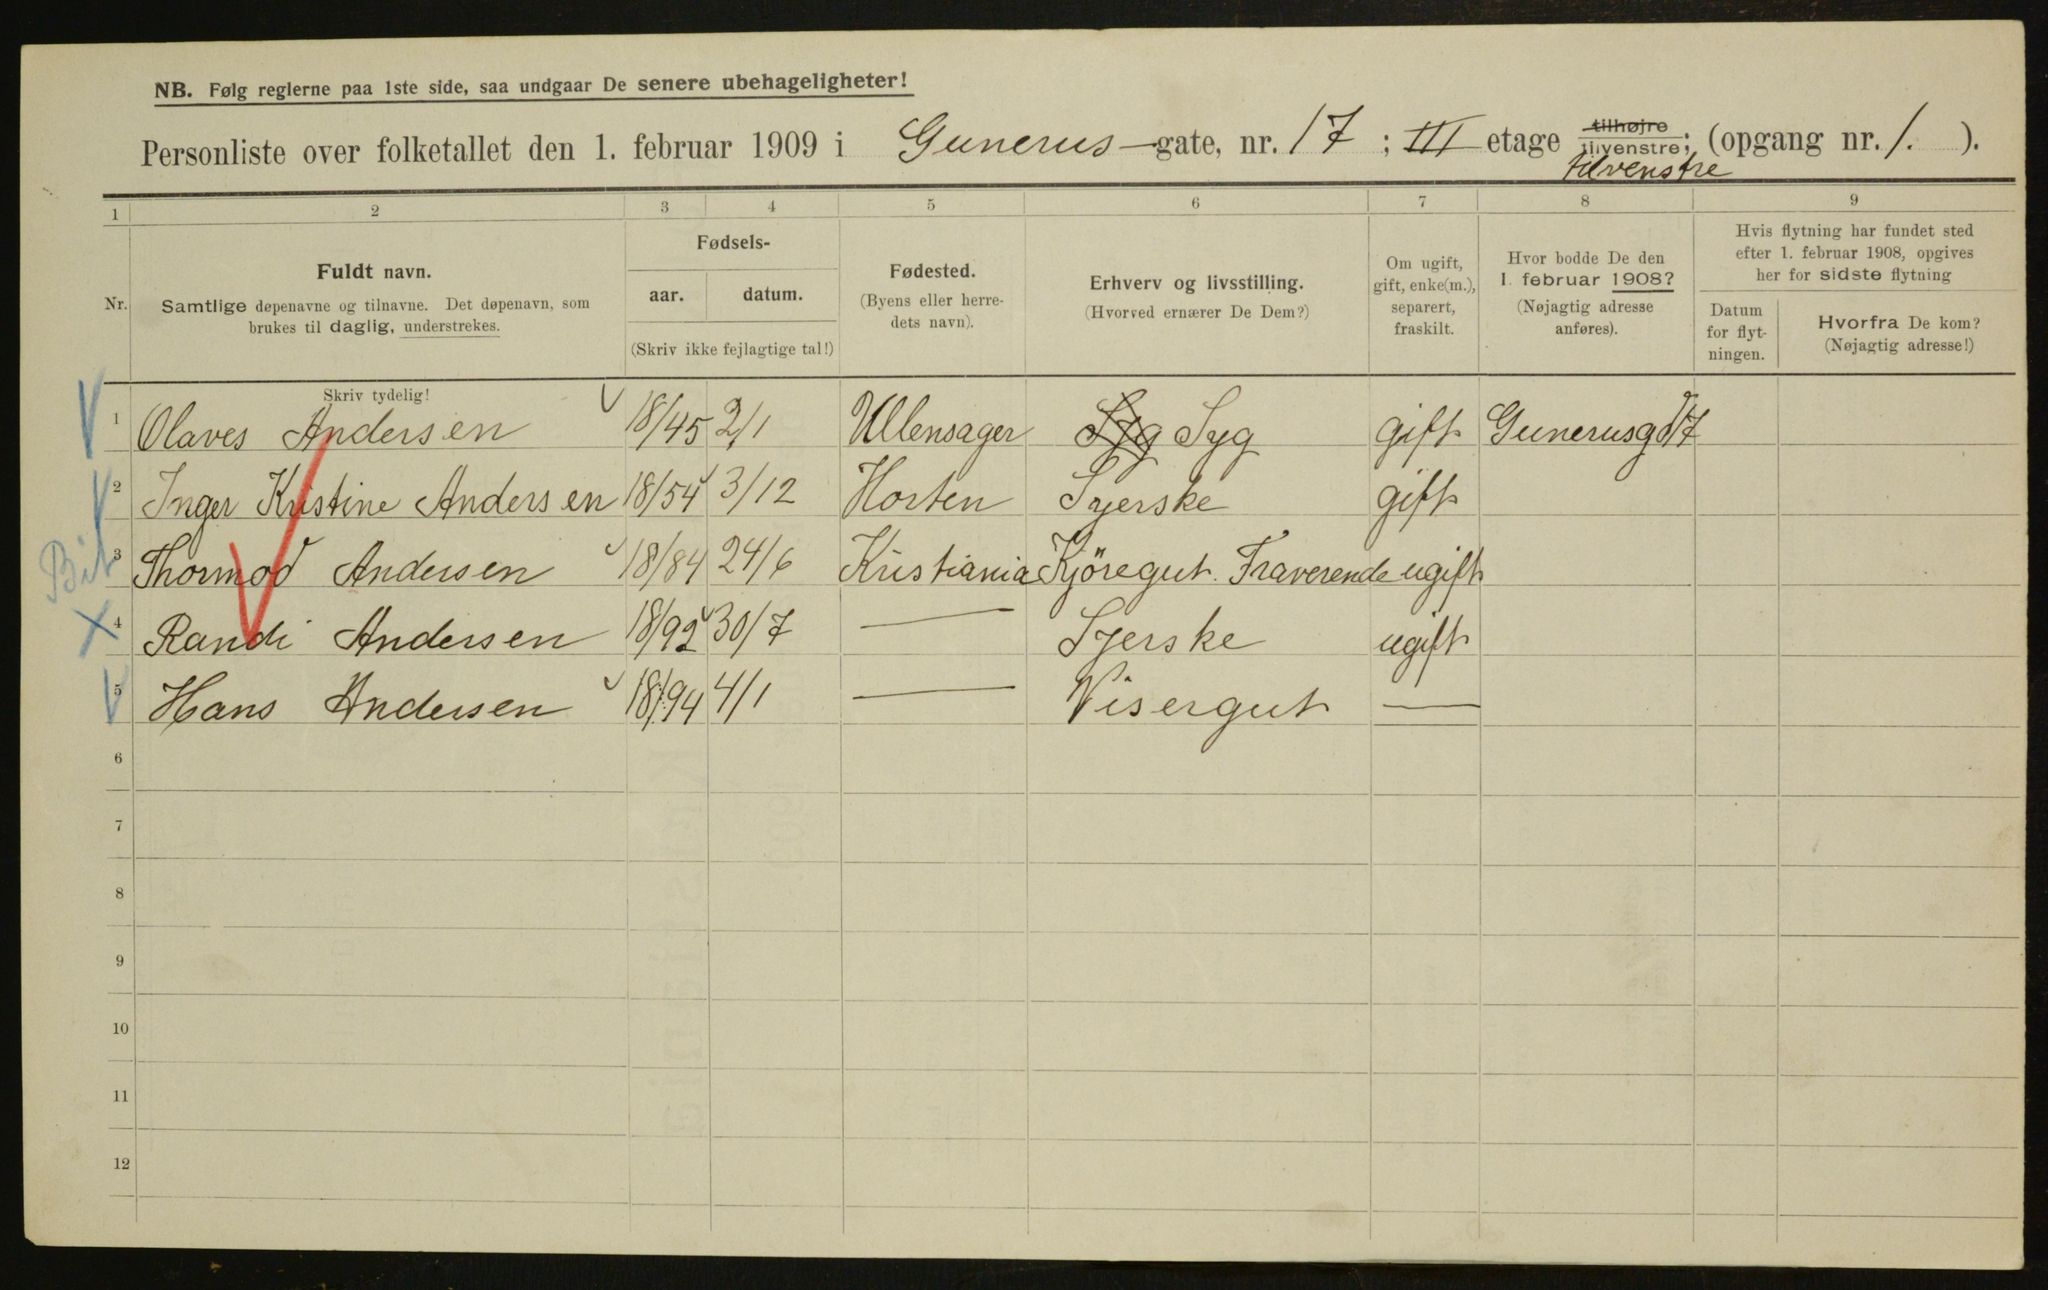 NB. Følg reglerne paa 1ste side, saa undgaar De senere ubehageligheter!
Personliste over folketallet den 1. februar 1909 i Gunerus-gate, nr. 17; III etage tilhøjre tilvenstre; (opgang nr. 1. ).
tilvenstre
1 2 3 4 5 6 7 8 9
Nr.
Fuldt navn.
Samtlige døpenavne og tilnavne. Det døpenavn, som
brukes til daglig, understrekes.
Fødsels-
aar. datum.
(Skriv ikke fejlagtige tal!)
Fødested.
(Byens eller herre-
dets navn).
Erhverv og livsstilling.
(Hvorved ernærer De Dem?)
Om ugift,
gift, enke(m.),
separert,
fraskilt.
Hvor bodde De den
1. februar 1908?
(Nøjagtig adresse
anføres).
Hvis flytning har fundet sted
efter 1. februar 1908, opgives
her for sidste flytning
Datum
for flyt-
ningen.
Hvorfra De kom?
(Nøjagtig adresse!)
Skriv tydelig!
1 Olaves Andersen 18/45 2/1 Ullensager Syg Syg gift Gunerusgd 17
2 Inger Kristine Andersen 18/54 3/12 Horten Syerske gift
Bit 3 Thormod Andersen 18/84 24/6 Kristiania Kjöregut. Fraverende ugift
X 4 Randi Andersen 18/92 30/7 — Syerske ugift
5 Hans Andersen 18/94 4/1 — Visergut —
6
7
8
9
10
11
12